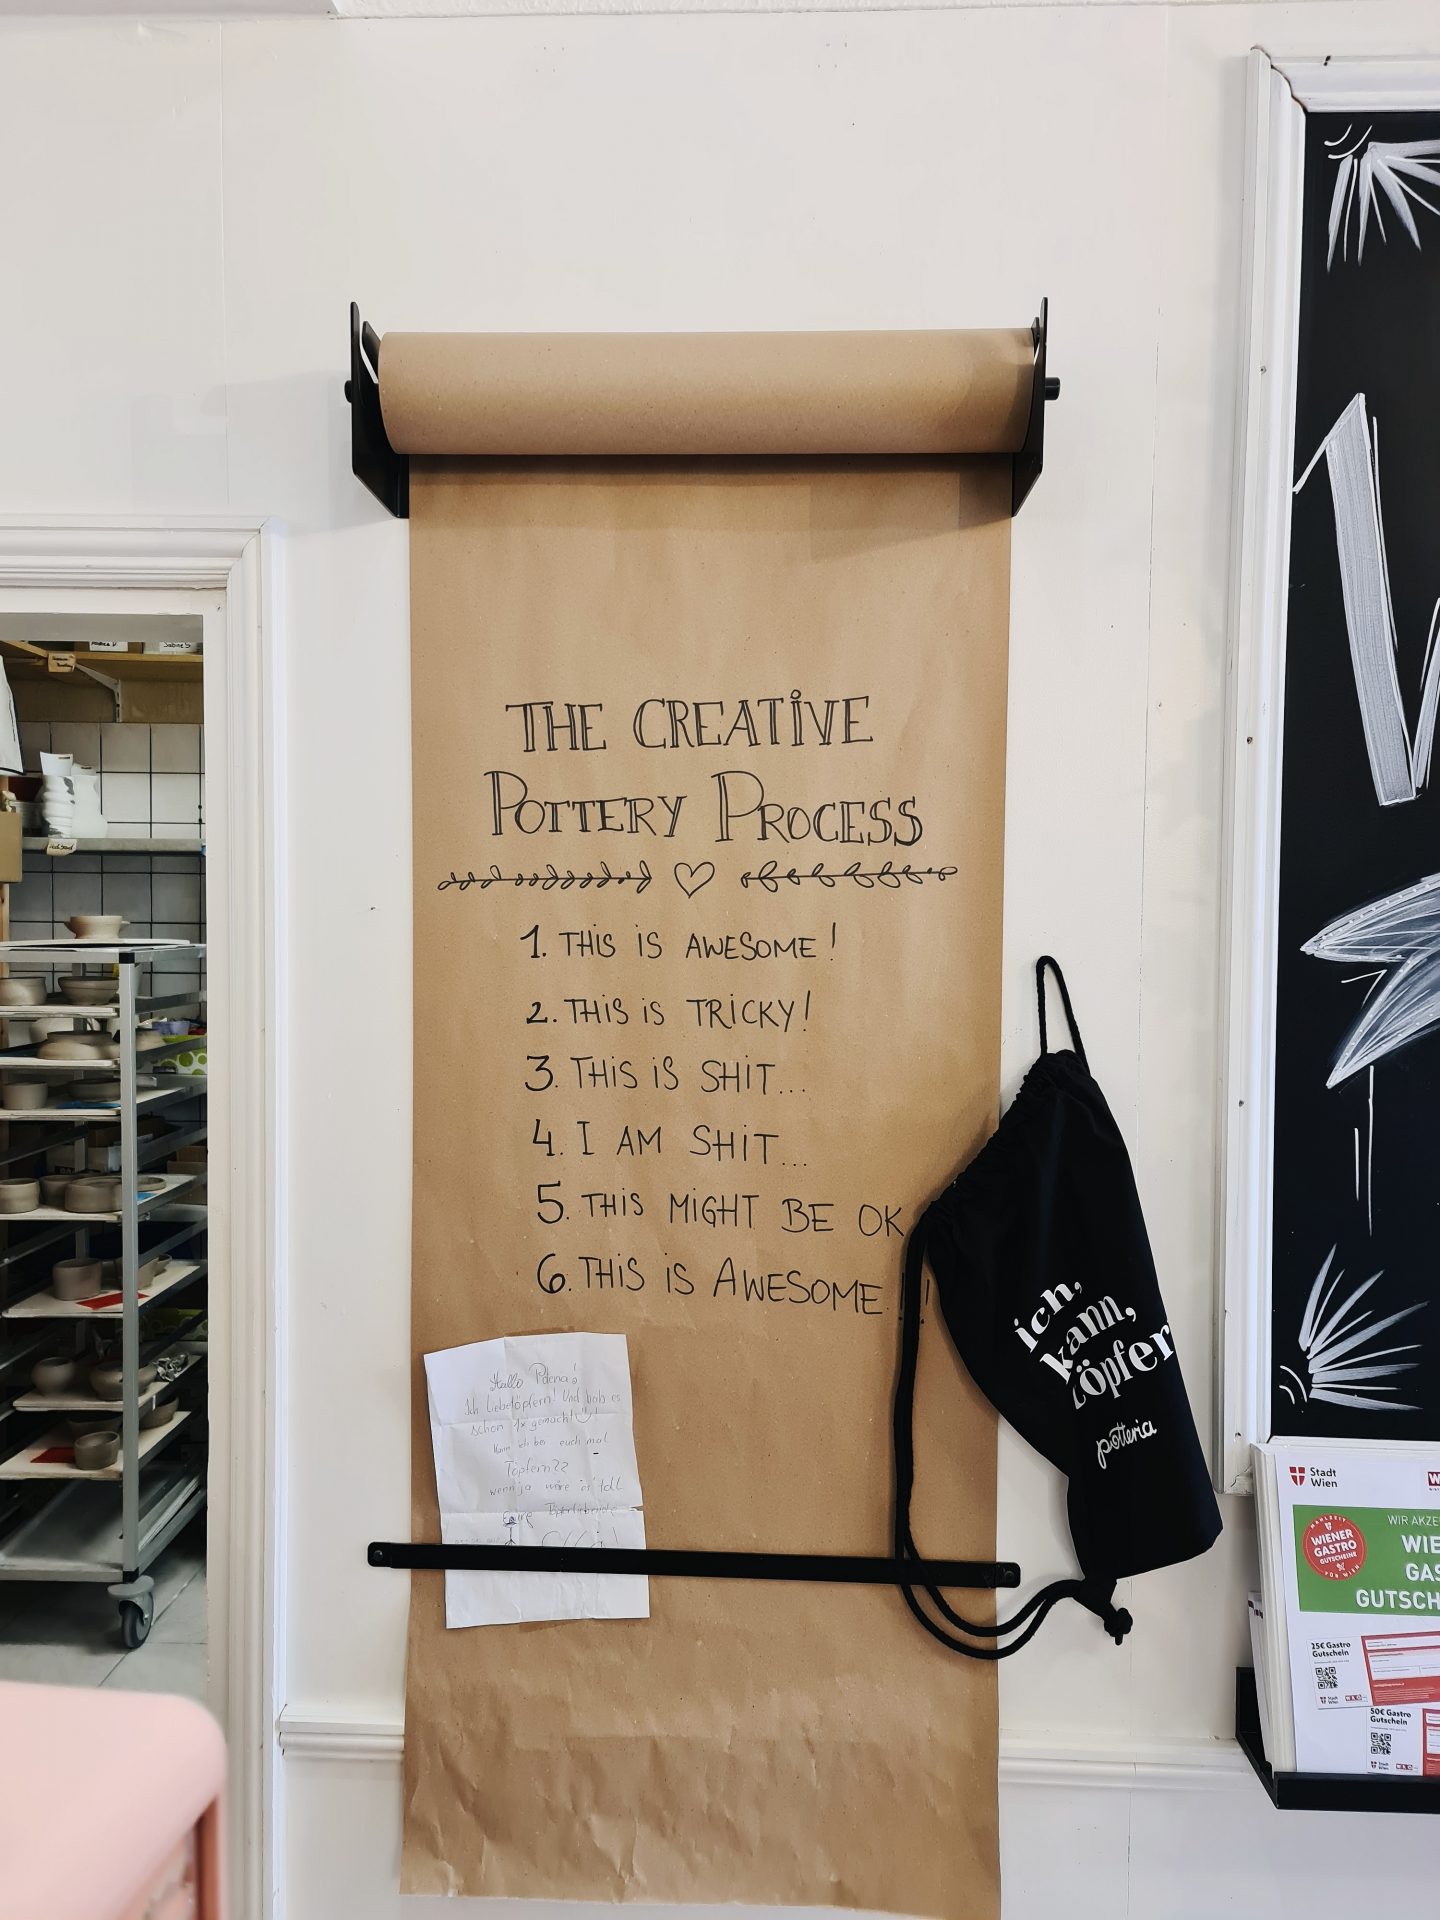 THE CREATIVE
POTTERY PROCESS
1. THIS IS AWESOME!
2. THIS IS TRICKY!
3. THIS IS SHIT...
4. I AM SHIT...
5. THIS MIGHT BE OK
6. THIS IS AWESOME!!
Hallo
Ich liebe töpfern! Und hab es
schon 1x gemacht!
Kann ich bei euch mal
Töpfern??
wenn ja wäre es toll
Eure
ich,
kann,
töpfern
potteria
Sabine S
Stadt
Wien
WIR AKZE
MAHLZEIT
WIENER
GASTRO
GUTSCHEINE
VON WIEN
WIE
GAS
GUTSCH
25€ Gastro
Gutschein
Stadt
Wien
50€ Gastro
Gutschein